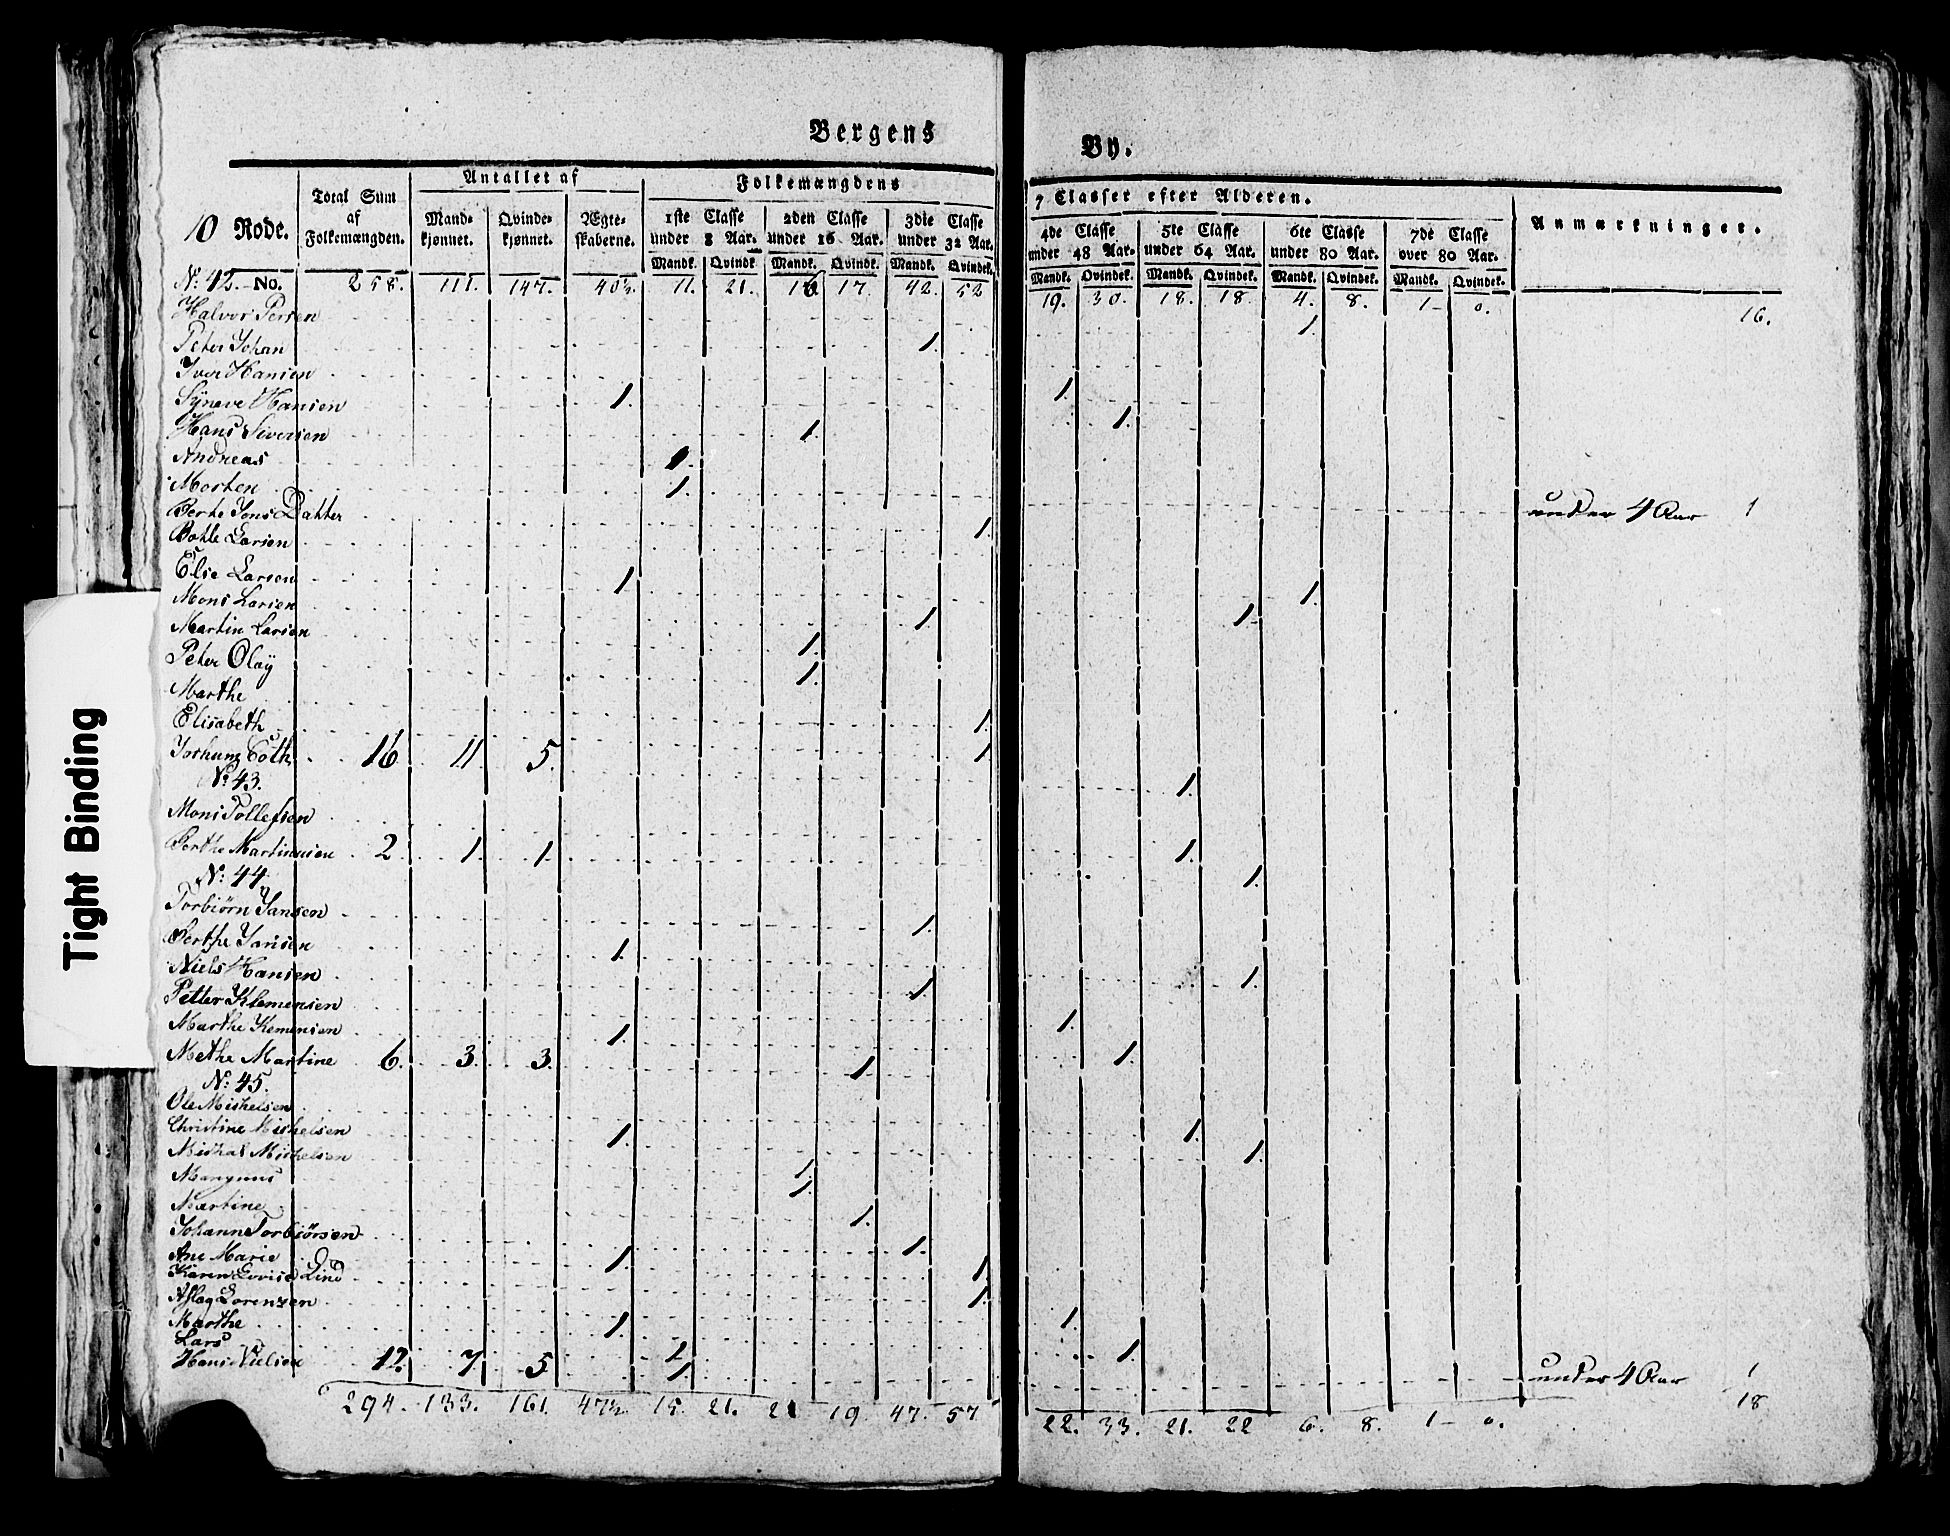 Bergens By.
10 Rode.
Total Sum af Folkemængden.
Antallet af
Mandkjønnet. Qvindekjønnet. Ægteskaberne.
Folkemængdens 7 Classer efter Alderen.
1ste Classe under 8 Aar.
2den Classe under 16 Aar.
3die Classe under 32 Aar.
4de Classe under 48 Aar.
5te Classe under 64 Aar.
6te Classe under 80 Aar.
7de Classe over 80 Aar.
Mandk. Qvindek. Mandk. Qvindek. Mandk. Qvindek. Mandk. Qvindek. Mandk. Qvindek. Mandk. Qvindek. Mandk. Qvindek.
Anmærkninger.
No: 42. No. 258. 111. 147. 40½. 11. 21. 16 17. 42. 52 19. 30. 18. 18. 4. 8. 1 0. 16.
Halvor Persen 1.
Peter Johan 1.
Iver Hansen 1.
Syneve Hansen 1. 1.
Hans Siversen 1.
Andreas 1.
Morten 1. under 4 Aar 1
Berte Jons Datter 1.
Bothle Larsen
Else Larsen 1.
Mons Larsen 1.
Martin Larsen 1. 1.
Peter Olay 1.
Marthe 1.
Elisabeth 1.
Jochum Coth 16 11 5. 1
No: 43. 1.
Mons Tollefsen
Berthe Martinusen 2 1. 1. 1.
No: 44. 1.
Torbiørn Jansen 1.
Berthe Jansen 1.
Niels Hansen 1.
Petter Klemensen 1.
Marthe Klemensen 1. 1.
Methe Martine 6. 3. 3. 1. 1.
No: 45.
Ole Michelsen
Christine Michelsen 1. 1.
Michal Michelsen 1.
Mangnus 1. 1.
Martine 1.
Johann Torbiørsen 1.
Ane Marie 1. 1.
Karen Lovise Lind
Aslag Lorenzen 1.
Marthe 1. 1.
Lars 1. 1.
Hans Nielsen 12. 7. 5 1. under 4 Aar 1
294. 133. 161. 47½ 15. 21. 21 19. 47. 57 22. 33. 21. 22 6. 8. 1 0. 18
Tight Binding